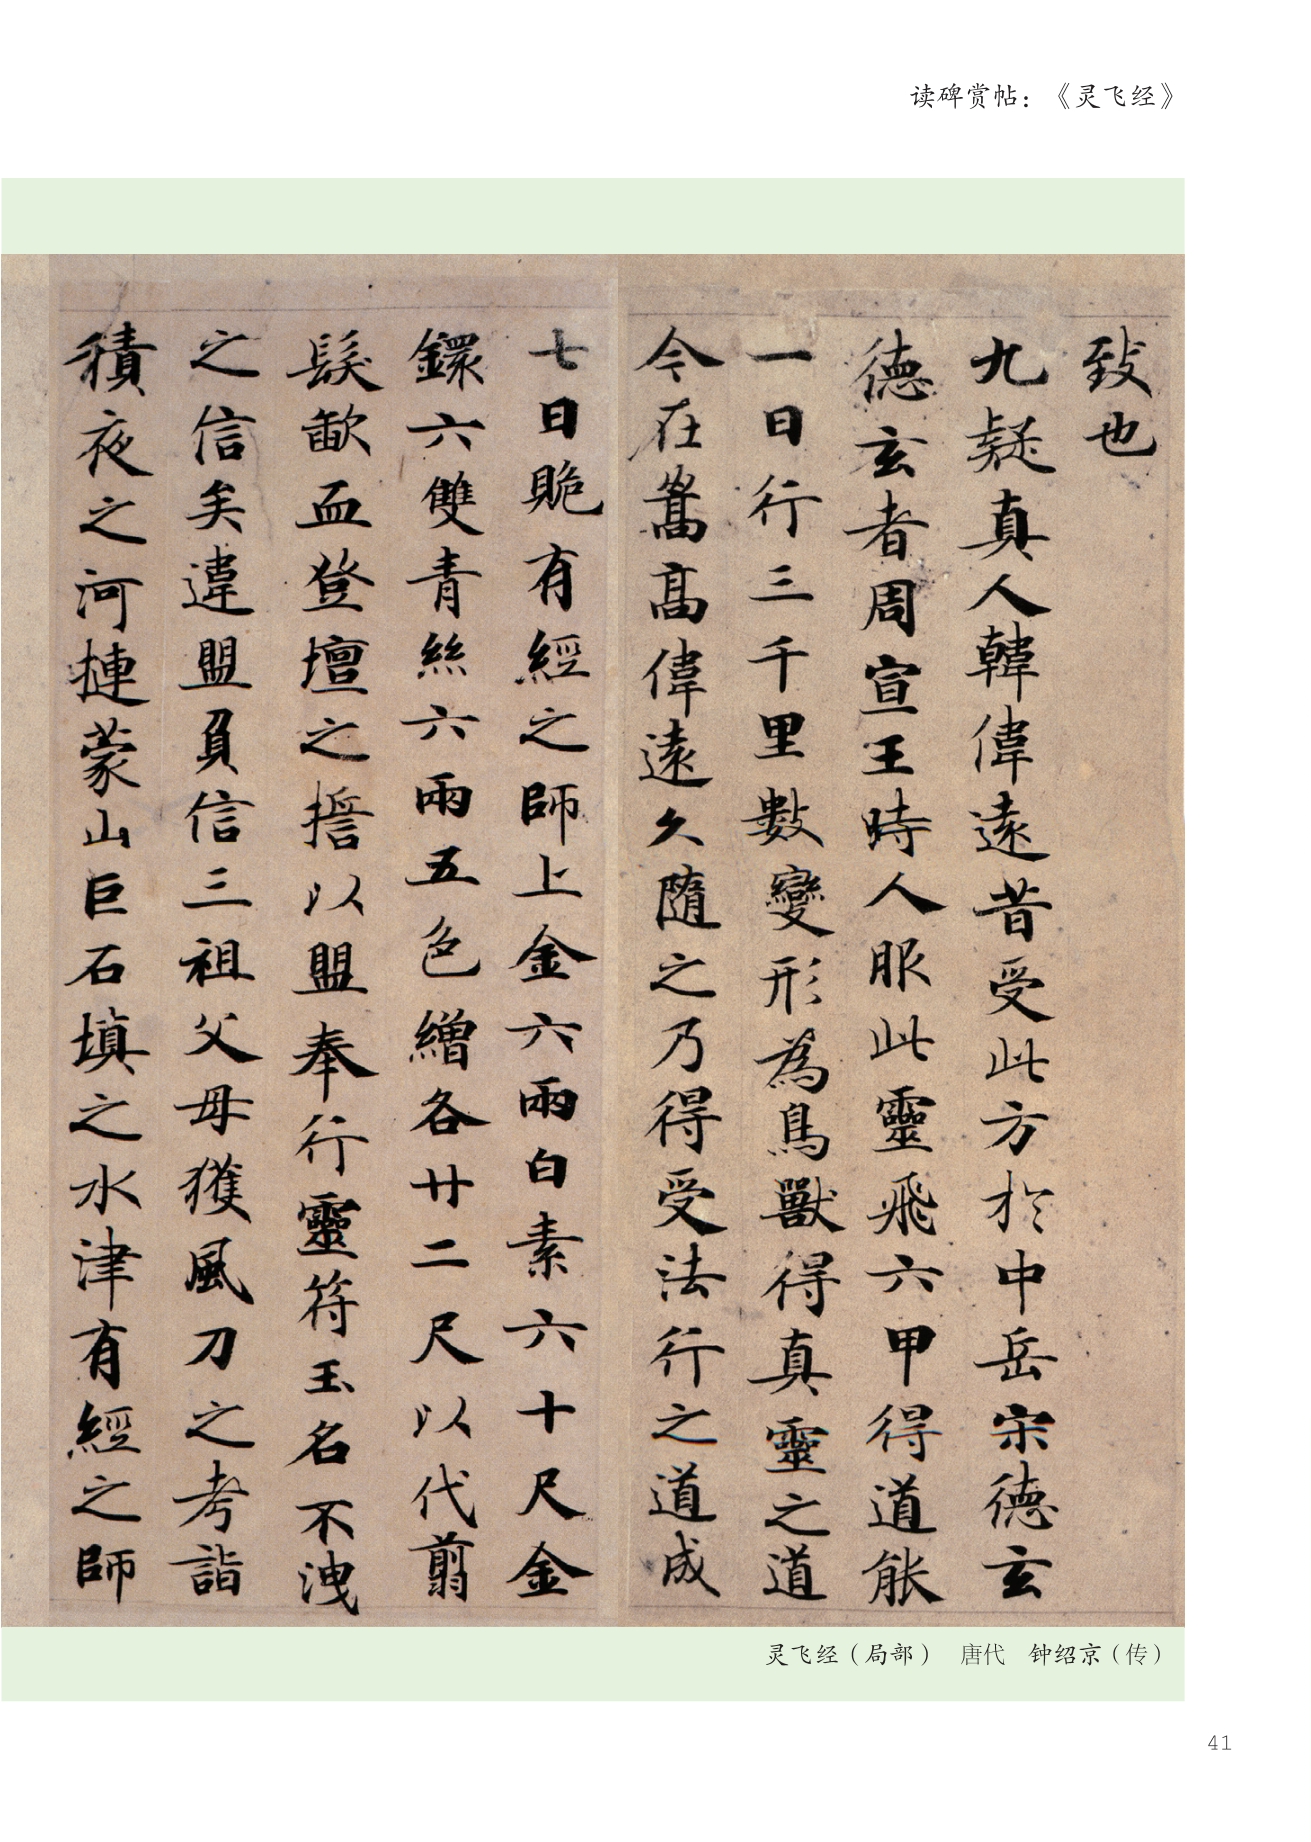 读碑赏帖：《灵飞经》
致也
九疑真人韓偉遠昔受此方於中岳宋德玄
德玄者周宣王時人服此靈飛六甲得道能
一日行三千里數變形為鳥獸得真靈之道
今在嵩高偉遠久隨之乃得受法行之道成
七日跪有經之師上金六兩白素六十尺金
鐶六雙青絲六兩五色繒各廿二尺以代翦
髮歃血登壇之擔以盟奉行靈符玉名不洩
之信矣違盟負信三祖父母獲風刀之考詣
積夜之河摙蒙山巨石填之水津有經之師
灵飞经（局部） 唐代 钟绍京（传）
41